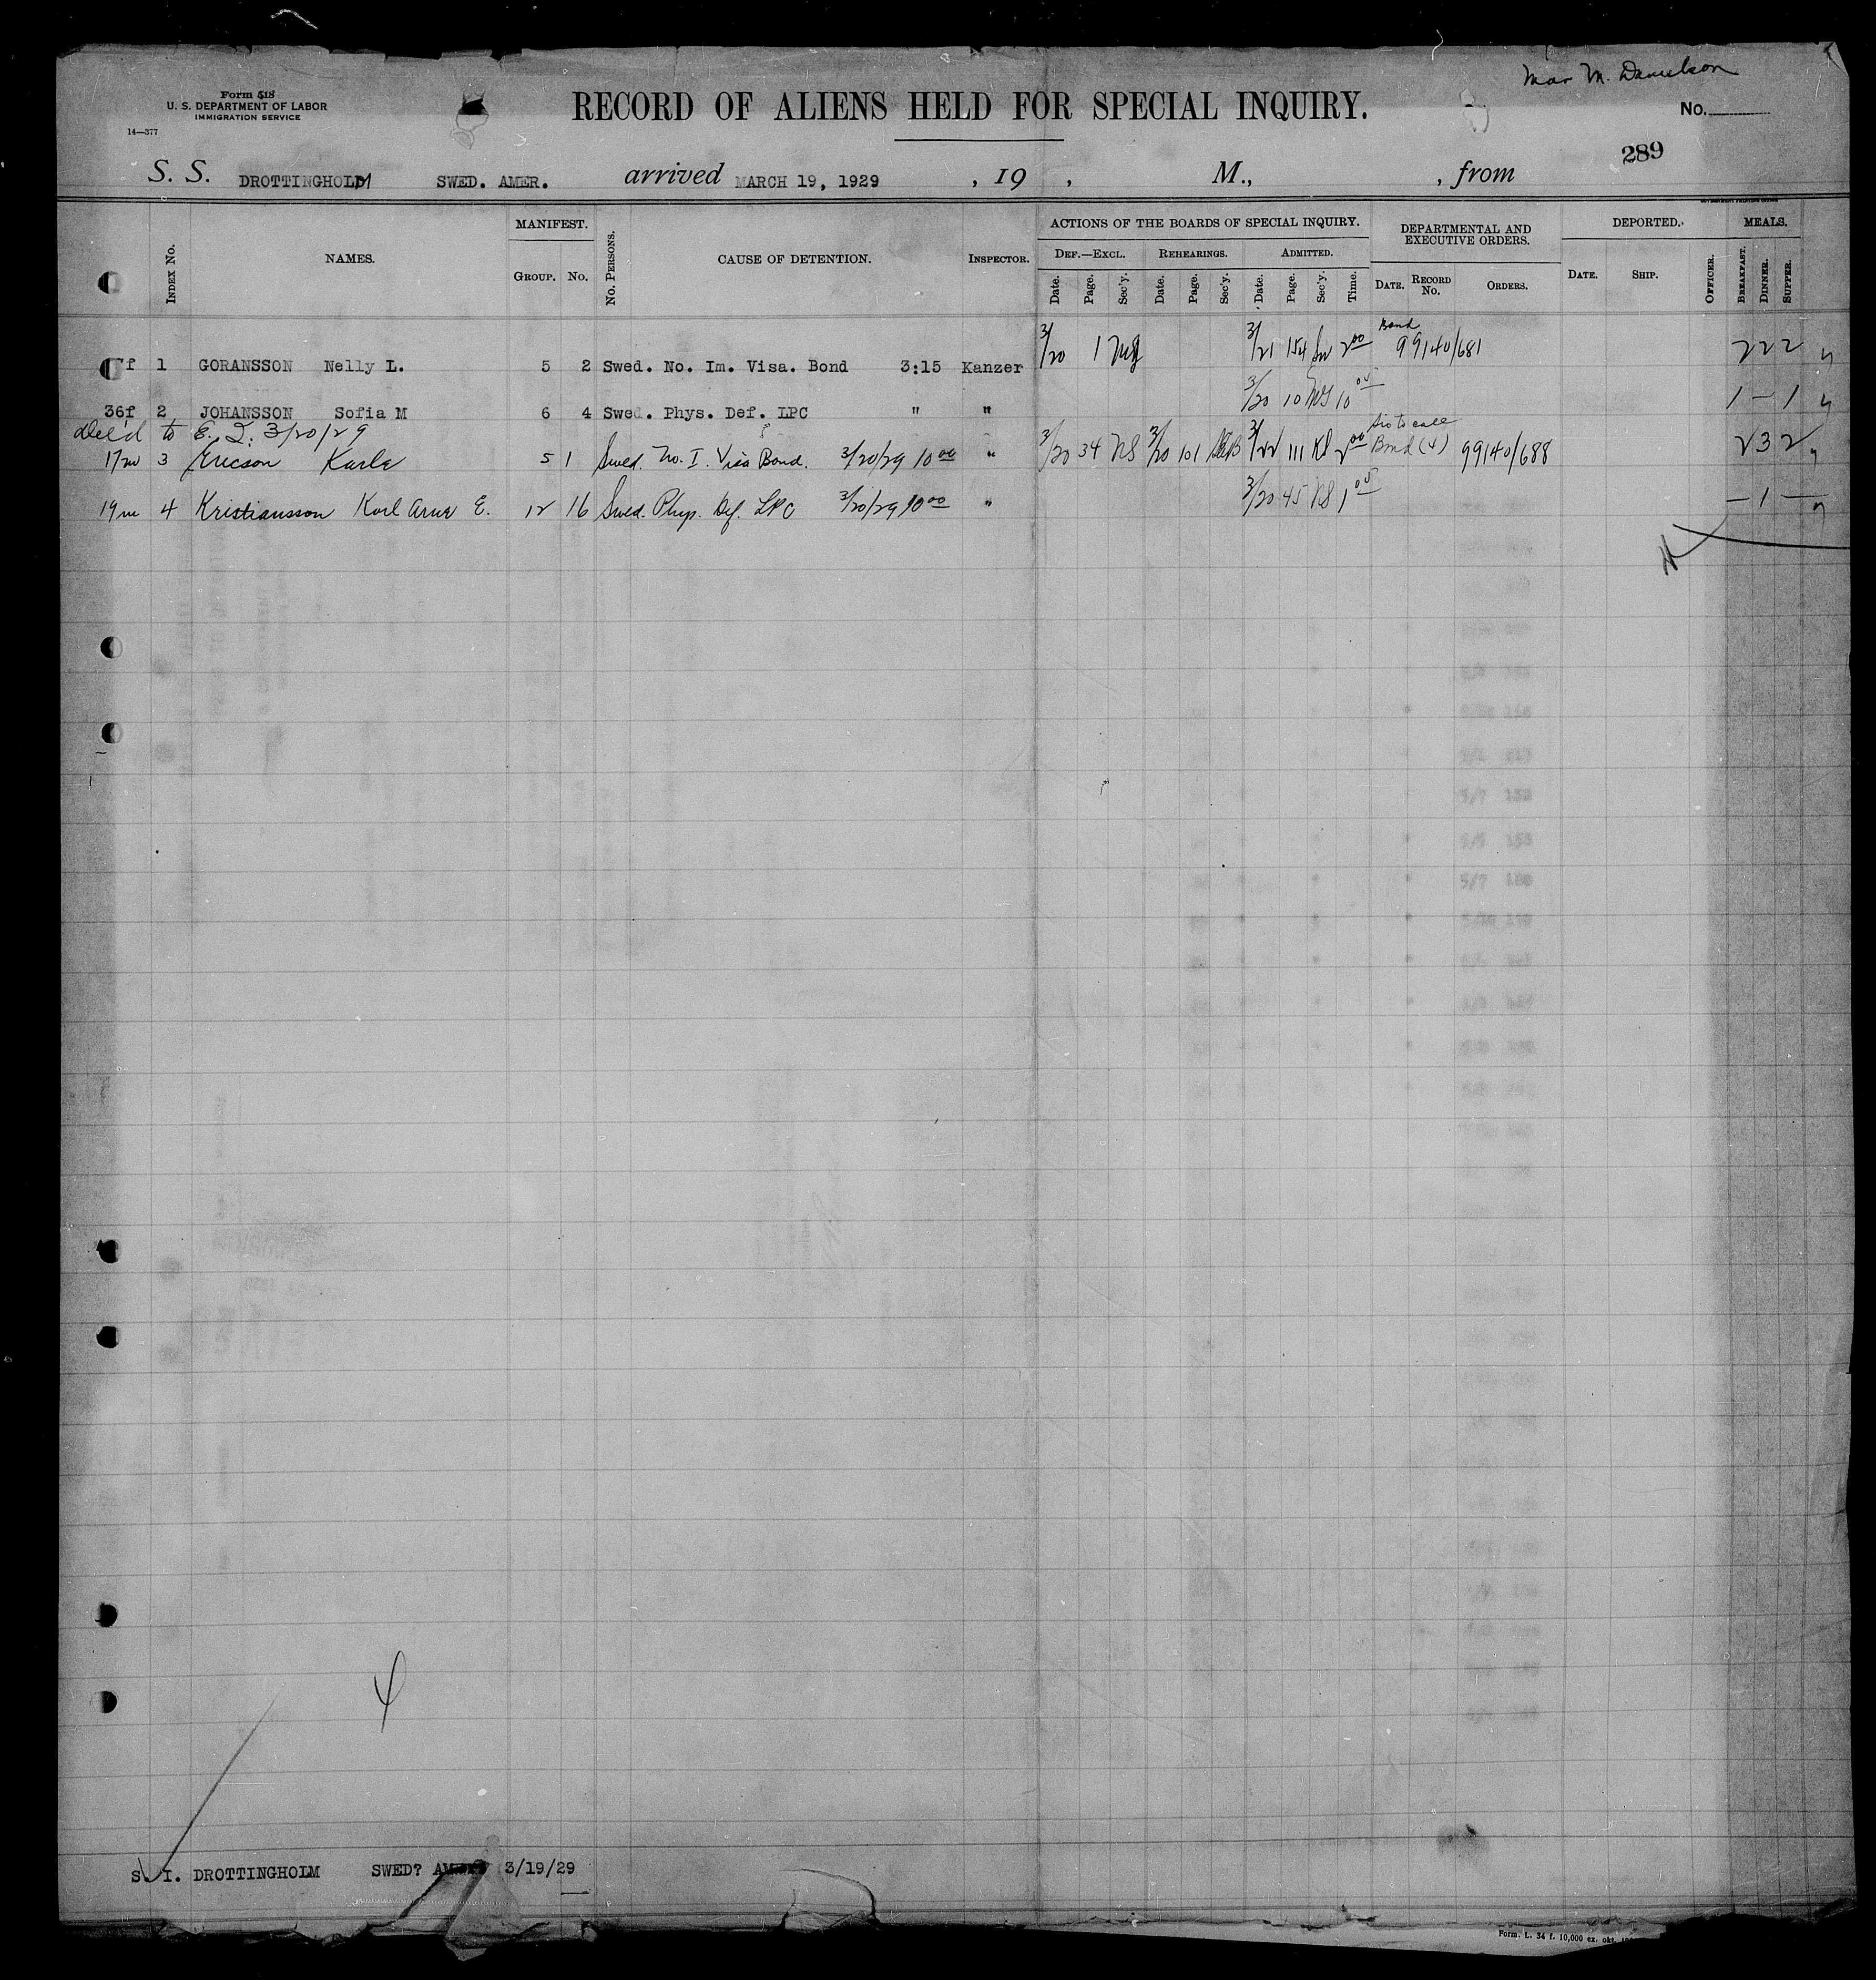 Mar M. Danielson
Form 518
U. S. DEPARTMENT OF LABOR
IMMIGRATION SERVICE
14—377
RECORD OF ALIENS HELD FOR SPECIAL INQUIRY.
No.
289
S. S. DROTTINGHOLM SWED. AMER. arrived MARCH 19, 1929 , 19 , M., , from
Index No. NAMES. MANIFEST. GROUP. No. No. PERSONS. CAUSE OF DETENTION. INSPECTOR. ACTIONS OF THE BOARDS OF SPECIAL INQUIRY. DEPARTMENTAL AND EXECUTIVE ORDERS. DEPORTED. MEALS.
DEF.—EXCL. REHEARINGS. ADMITTED.
Date. Page. Sec'y. Date. Page. Sec'y. Date. Page. Sec'y. Time. DATE. RECORD No. ORDERS. DATE. SHIP. OFFICER. BREAKFAST. DINNER. SUPPER.
Bond
f 1 GORANSSON Nelly L. 5 2 Swed. No. Im. Visa. Bond 3:15 Kanzer 3/20 1 3/21 154 2 00 99140/681 2 2 2
36f 2 JOHANSSON Sofia M 6 4 Swed. Phys. Def. LPC " " 3/20 10 10 05 1 — 1
Del'd to E. I. 3/20/29
17m 3 Ericson Karle 5 1 Swed. No. I. Visa Bond. 3/20/29 10 00 " 3/20 34 NS 3/20 101 3/22 111 RS 2 00 Bond (4) 99140/688 2 3 2
19m 4 Kristiansson Karl Arne E. 12 16 Swed. Phys. Def. LPC 3/20/29 10 00 " 3/20 45 NS 1 05 — 1 —
4
S. I. DROTTINGHOLM SWED? AMER 3/19/29
Form. L. 34 f. 10,000 ex. okt.